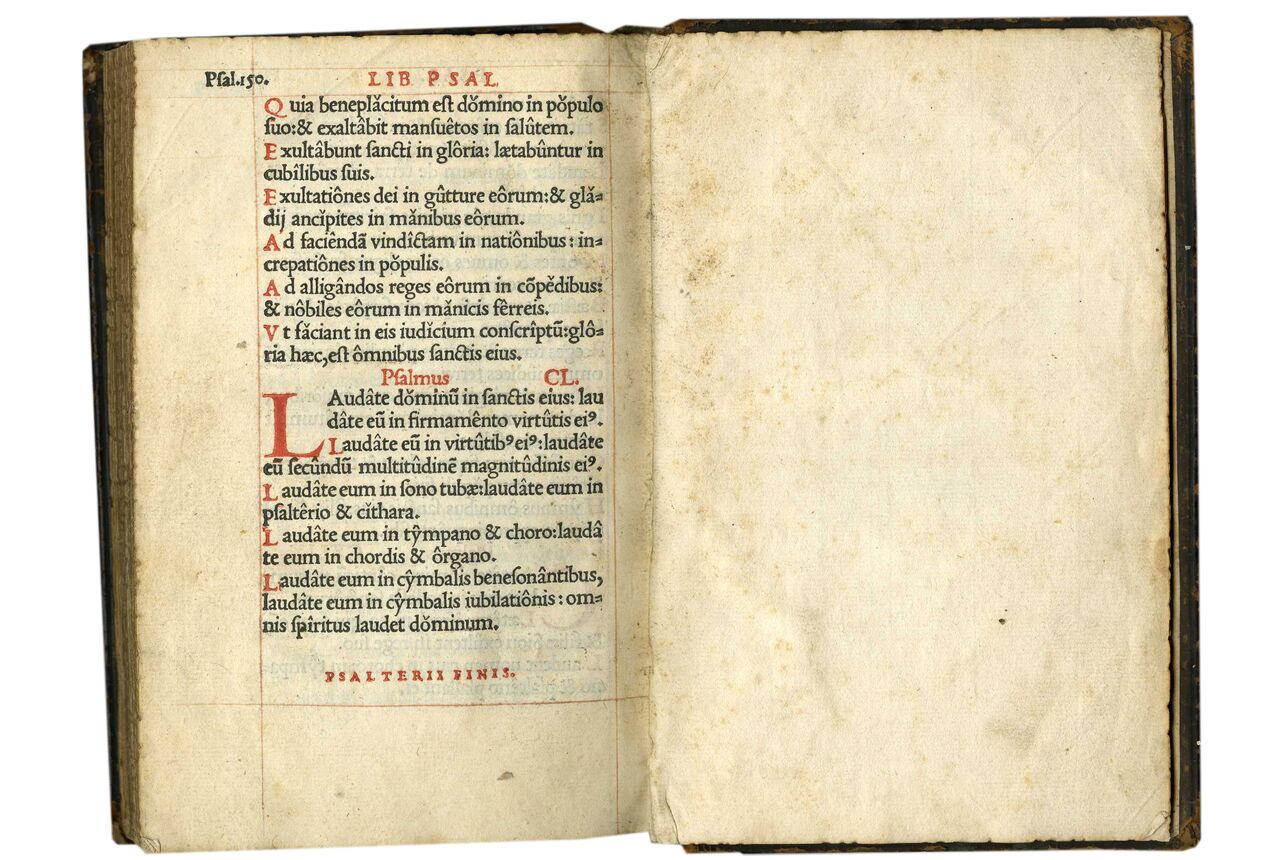 Psal.150.
LIB PSAL.
Quia beneplǎcitum est dǒmino in pǒpulo
suo:& exaltâbit mansuêtos in salûtem.
Exultâbunt sancti in glôria: lætabûntur in
cubîlibus suis.
Exultatiônes dei in gûtture eôrum:& glǎ=
dij ancǐpites in mǎnibus eôrum.
Ad faciêndã vindîctam in natiônibus: in=
crepatiônes in pǒpulis.
Ad alligândos reges eôrum in cõpědibus:
& nôbiles eôrum in mǎnicis fêrreis.
Vt fǎciant in eis iudǐcium conscrîptũ:glô=
ria hæc,est ômnibus sanctis eius.
Psalmus CL.
LAudâte dǒminũ in sanctis eius: lau
dâte eũ in firmamênto virtûtis eiꝰ.
Laudâte eũ in virtûtibꝰ eiꝰ:laudâte
eũ secûndũ multitûdinẽ magnitûdinis eiꝰ.
Laudâte eum in sono tubæ:laudâte eum in
psaltêrio & cǐthara.
Laudâte eum in tŷmpano & choro:laudâ
te eum in chordis & ôrgano.
Laudâte eum in cŷmbalis benesonântibus,
laudâte eum in cŷmbalis iubilatiônis: om=
nis spîritus laudet dǒminum.
PSALTERII FINIS.